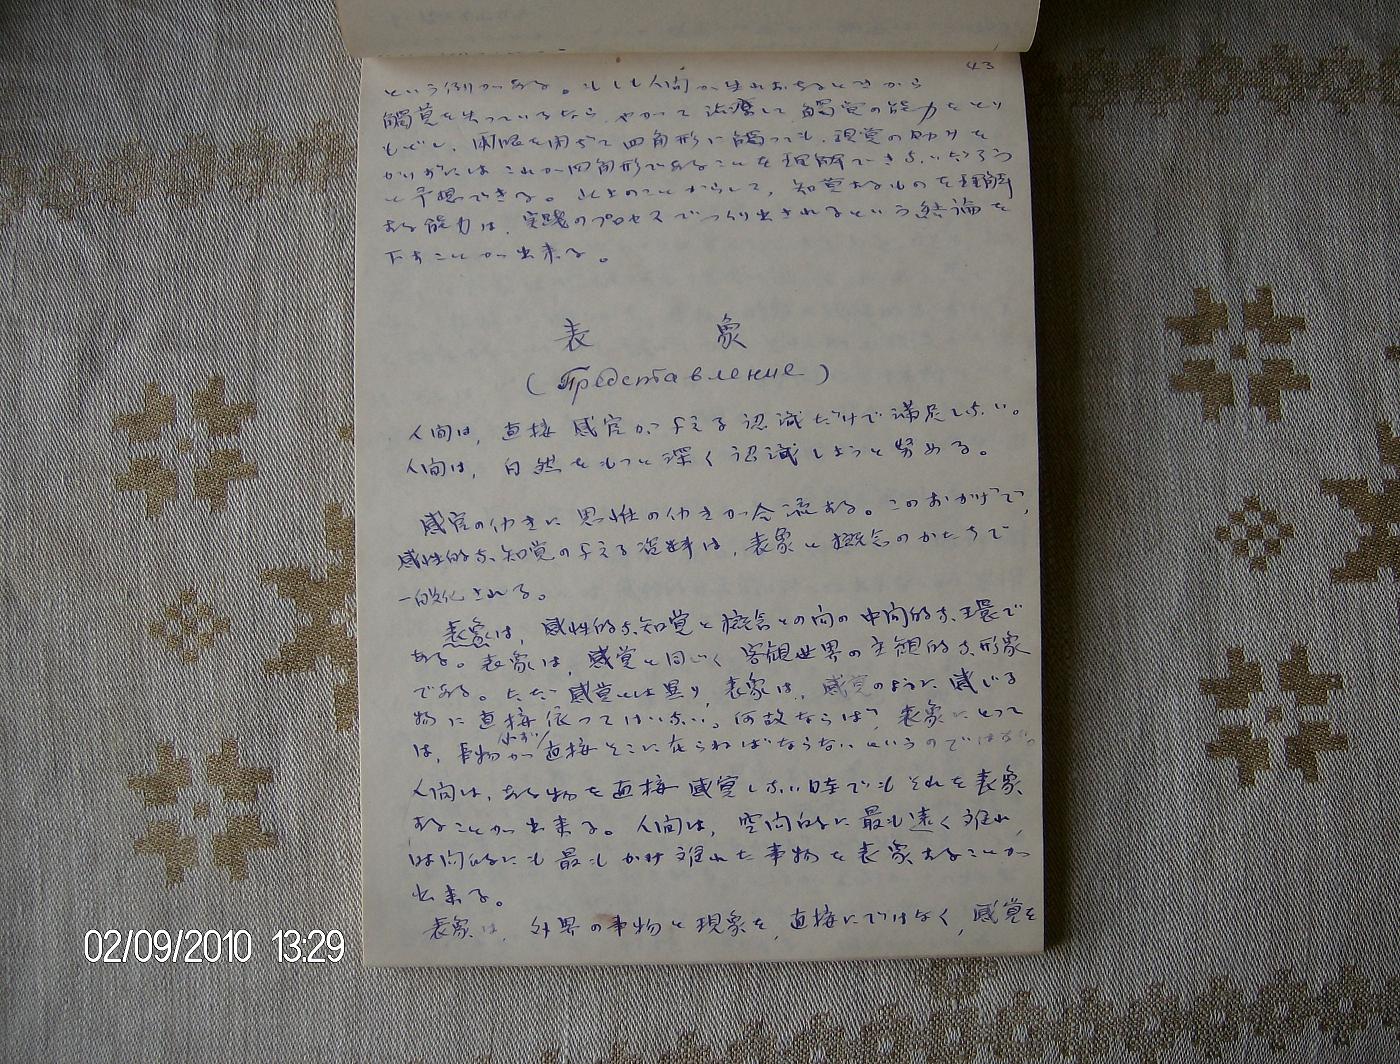 43
という例がある。もしも人間が生れおちるときから
觸覚を失っているなら、やがて治療して觸覚の能力をとり
もどし、両眼を閉ぢて四角形に觸っても、視覚の助けを
かりずにはこれが四角形であることを理解できないだろう
と予想できる。以上のことからして、知覚するものを理解
する能力は、実践のプロセスでつくり出されるという結論を
下すことが出来る。
表 象
(Представление)
人間は、直接感官が与える認識だけで満足しない。
人間は、自然をもっと深く認識しようと努める。
感官の働きに思惟の働きが合流する。このおかげで、
感性的な知覚の与える資料は、表象と概念のかたちで
一般化される。
表象は、感性的な知覚と概念との間の中間的な環で
ある。表象は、感覚と同じく客観世界の主観的な形象
である。ただ感覚とは異り、表象は、感覚のように感じる
物に直接依ってはいない。何故ならば、表象にとって
は、事物が必ず直接そこに在らねばならないというのではない。
人間は、ある物を直接感覚しない時でもそれを表象
することが出来る。人間は、空間的に最も遠く離れ、
時間的にも最もかけ離れた事物を表象することが
出来る。
表象は、外界の事物と現象を、直接にではなく、感覚を
02/09/2010 13:29